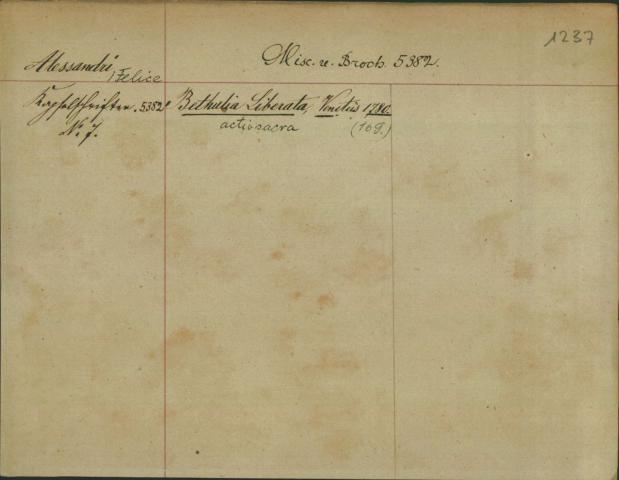 1237
Misc. u. Broch. 5382.
Alessandri, Felice
Kapselschriften. 5382
No. 7.
Bethulia Liberata, Venetiis 1780.
actio sacra
(109.)